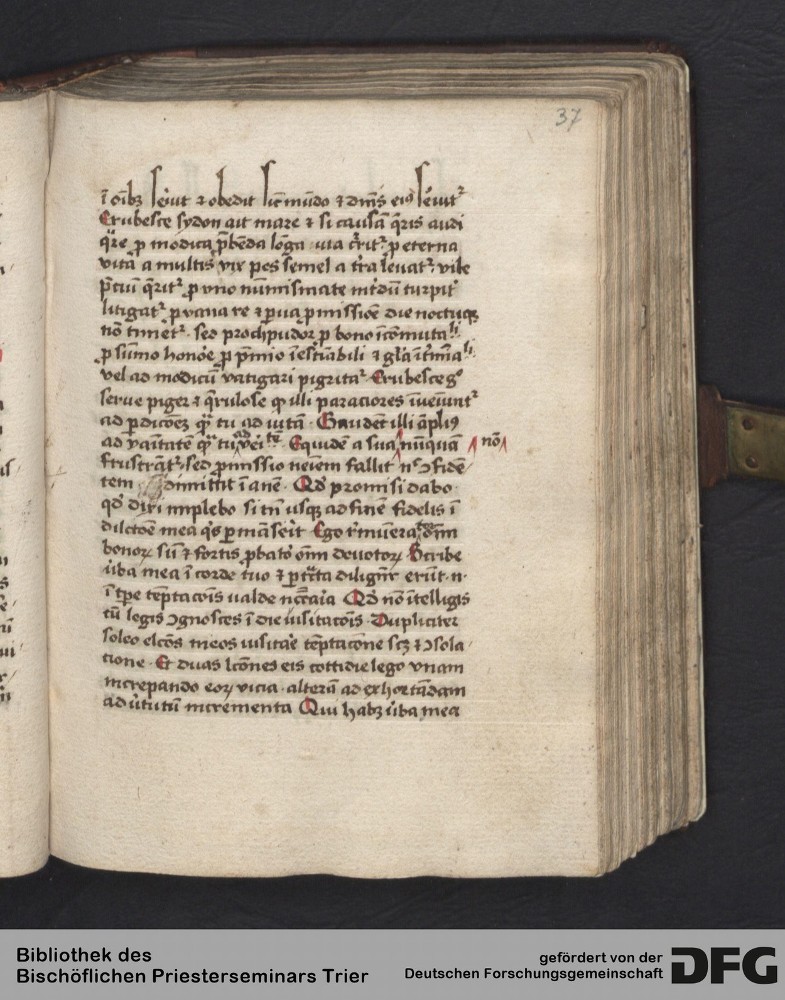 37
ī oībꝫ seruit ⁊ obedit sic̄ mūdo ⁊ dn̄is eiꝰ seruit᷑
Erubesce sydon ait mare ⁊ si causā q̄ris audi
q̄re ꝓ modica p̄benda lōga uia c̄rit᷑ ꝓ eterna
vita a multis vix pes semel a t̄ra leuat᷑ vile
p̄ciū q̄rit᷑ ꝓ vno numismate int̄dū turpit̄
litigat᷑ ꝓ vana re ⁊ ꝑua ꝓmissiōe die noctuqꝫ
nō timet᷑ sed prochpudor ꝓ bono incōmutali
ꝓ sūmo honōe ꝓ p̄mio īestīabili ⁊ gl̄a īt̄mīali
vel ad modicū vatigari pigritat᷑ Erubesce gͦ
serue piger ⁊ q̄rulose ꝙ illi paraciores īueīunt᷑
ad ꝑdicōeꝫ qͣꝫ tu ad uitā Gaudent illi āpliꝰ
ad vaītatē qͣꝫ tu ad veītē Equidē a sua nūquā nō
frustrāt᷑ sed ꝓmissio neīem fallit nͨ ↄfidē
tem dimittit īanē Qd̄ promisi dabo
qd̄ dixi implebo si tn̄ usqꝫ ad finē fidelis ī
dilctōe mea qͥs ꝑmāserit Ego r̄muneratͦr oīm
bonoꝝ sū ⁊ fortis ꝓbatoꝛ oīm deuotoꝝ Scribe
ūba mea ī corde tuo ⁊ ꝑtrc̄ta diligēr erūt .n.
ī tꝑe tēptacōis ualde nc̄c̄aīa Qd̄ nō ītelligis
cū legis ↄgnosces ī die uisitacōis Dupliciter
soleo elcōs meos uisitāe tēptacōne scꝫ ⁊ ↄsola
cione Et duas lcōnes eis cottidie lego vnam
increpando eoꝝ vicia alterā ad exhortādam
ad ūtutū incrementa Qui habꝫ ūba mea
Bibliothek des
Bischöflichen Priesterseminars Trier
gefördert von der
Deutschen Forschungsgemeinschaft
DFG